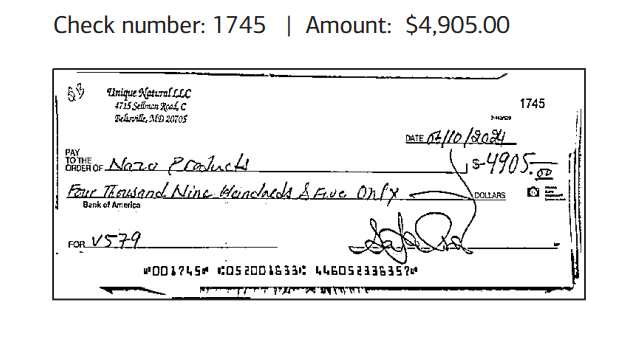 Check number: 1745 | Amount: $4,905.00
Unique Natural LLC
4715 Sellman Road, C
Beltsville, MD 20705
1745
DATE /10/2024
PAY TO THE ORDER OF Naza Products $ 4905.00
Four Thousand Nine Hundreds & Five Only DOLLARS
Bank of America
FOR V579
⑈001745⑈ ⑆052001633⑆ 446052338357⑈